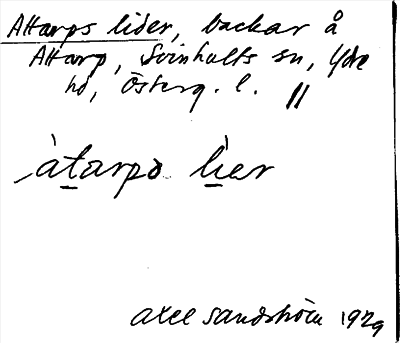 Attarps lider, backar å
Attarp, Svinhults sn, Ydre
hd, Österg. l. //
àtarpo lìer
Axel Sandström 1929